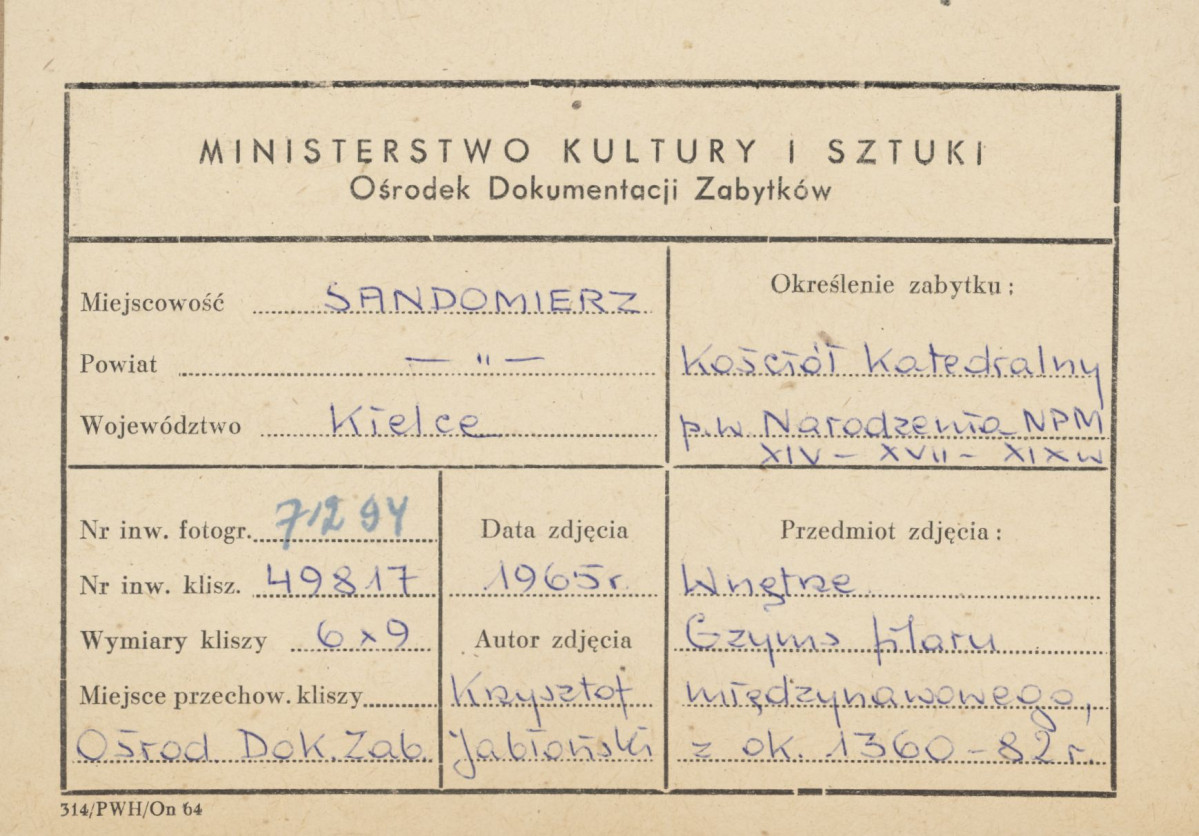 MINISTERSTWO KULTURY I SZTUKI
Ośrodek Dokumentacji Zabytków
Miejscowość SANDOMIERZ
Powiat — " —
Województwo Kielce
Określenie zabytku:
Kościół Katedralny
p.w. Narodzenia NPM
XIV – XVII – XIX w
Nr inw. fotogr. 71294
Nr inw. klisz. 49817
Wymiary kliszy 6x9
Miejsce przechow. kliszy
Ośrod. Dok. Zab.
Data zdjęcia
1965 r.
Autor zdjęcia
Krzysztof
Jabłoński
Przedmiot zdjęcia:
Wnętrze
Gzyms filaru
międzynawowego,
z ok. 1360-82 r.
314/PWH/On 64